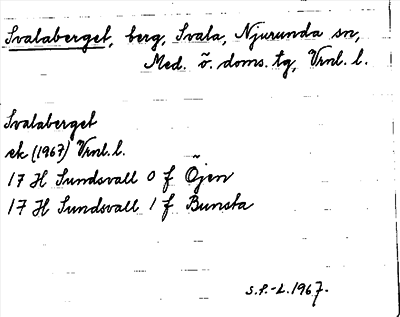 Svalaberget, berg, Svala, Njurunda sn,
Med. ö. doms. tg, Vrnl. l.
Svalaberget
ek (1967) Vrnl. l.
17 H Sundsvall 0 f Öjen
17 H Sundsvall 1 f Bunsta
S.P.-L. 1967.